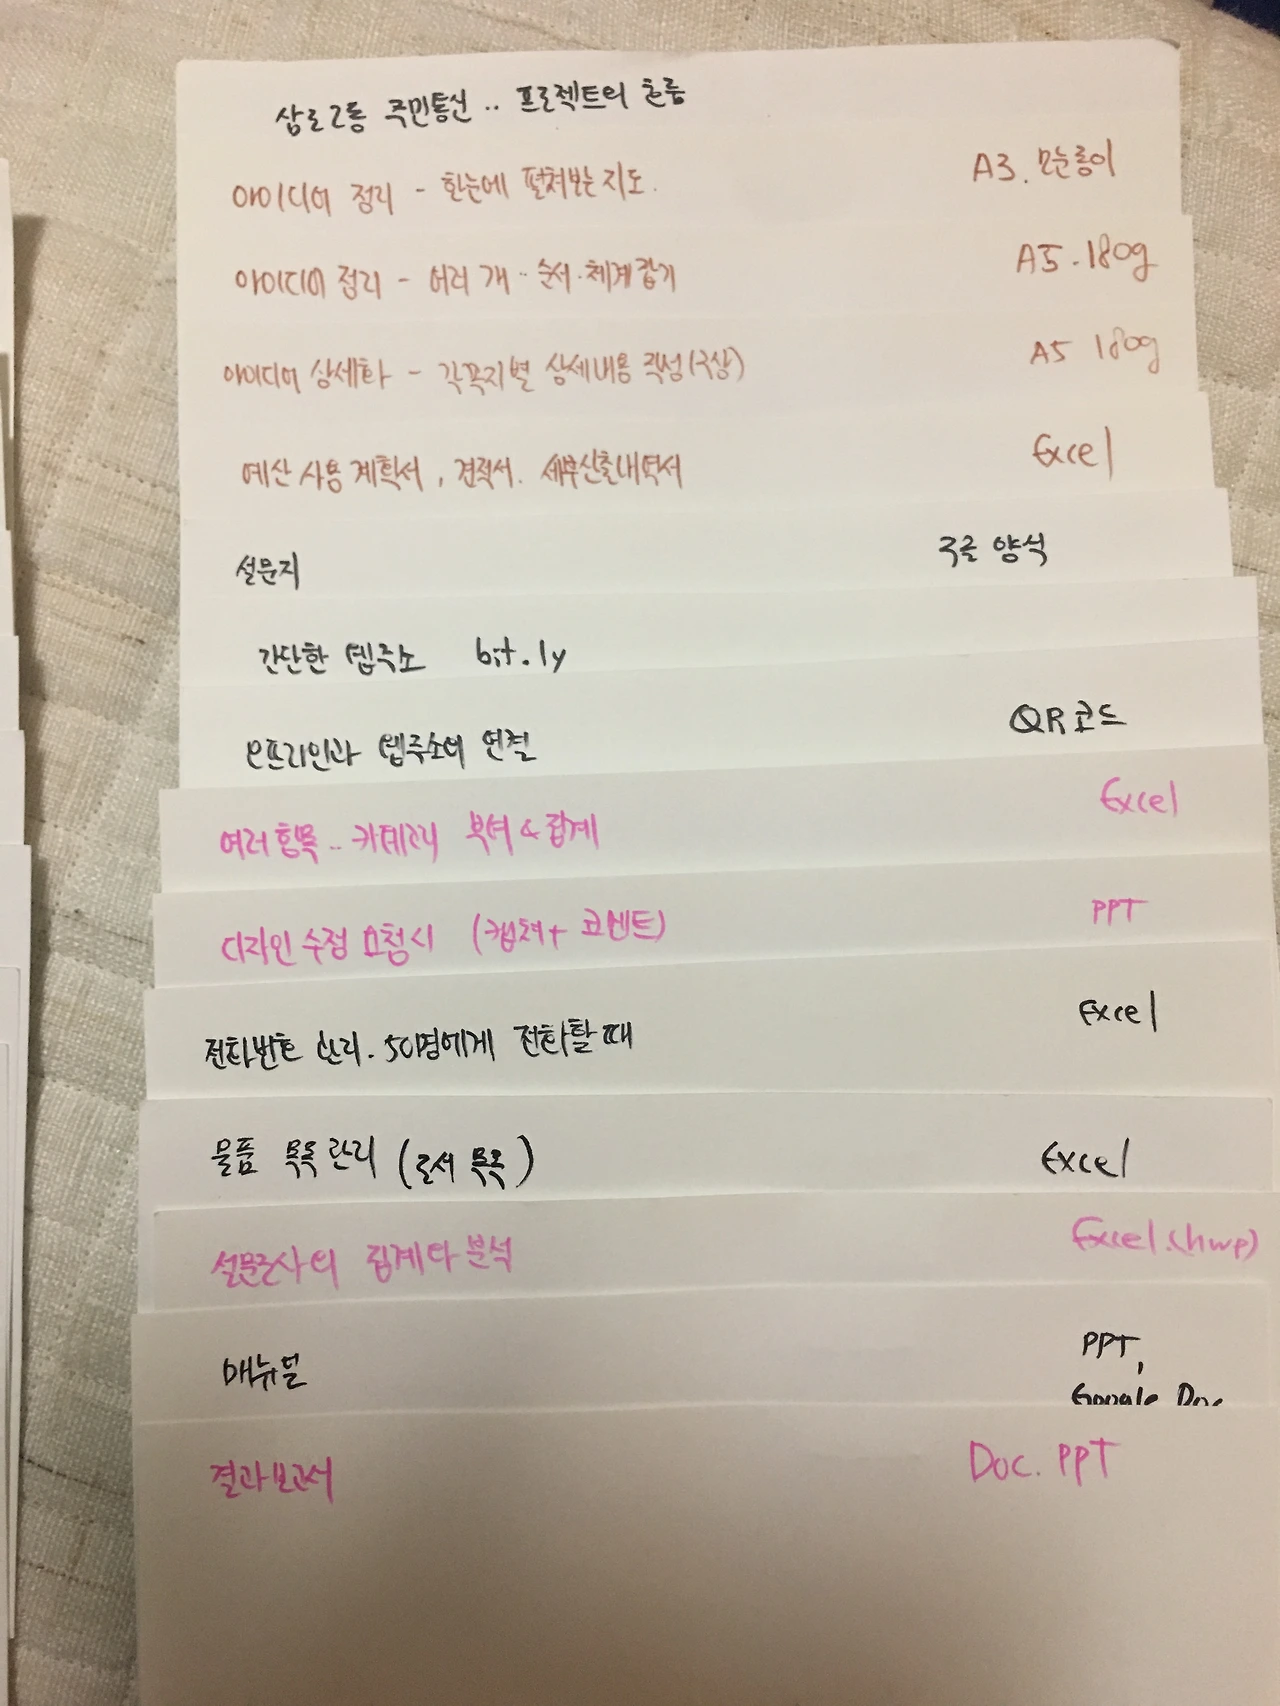 삼도2동 주민통신 .. 프로젝트의 흐름
아이디어 정리 - 한눈에 펼쳐보는 지도. A3. 모눈종이
아이디어 정리 - 여러 개·순서·체계잡기 A5. 180g
아이디어 상세화 - 각꼭지별 상세내용 작성(구상) A5 180g
예산 사용 계획서, 견적서. 세부산출내역서 Excel
설문지 구글 양식
간단한 웹주소 bit.ly
오프라인과 웹주소의 연결 QR코드
여러항목.. 카테고리 부여 & 집계 Excel
디자인 수정 요청시 (캡쳐 + 코멘트) PPT
전화번호 관리. 50명에게 전화할때 Excel
물품 목록 관리 (도서 목록) Excel
설문조사의 집계와 분석 Excel.(hwp)
매뉴얼 PPT,
Google Doc
결과보고서 Doc. PPT